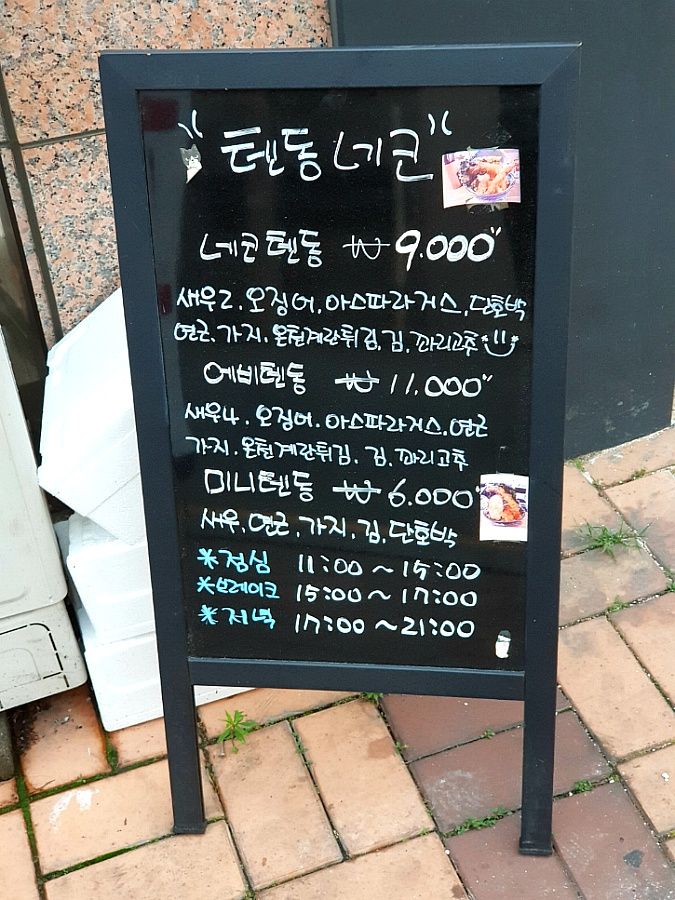 텐동 네코
네코텐동 ₩ 9.000"
새우2. 오징어. 아스파라거스. 단호박
연근. 가지. 온천계란튀김. 김. 꽈리고추
에비텐동 ₩ 11.000"
새우4. 오징어. 아스파라거스. 연근
가지. 온천계란튀김. 김. 꽈리고추
미니텐동 ₩ 6.000"
새우. 연근. 가지. 김. 단호박
*점심 11:00 ~ 15:00
*브레이크 15:00 ~ 17:00
*저녁 17:00 ~ 21:00